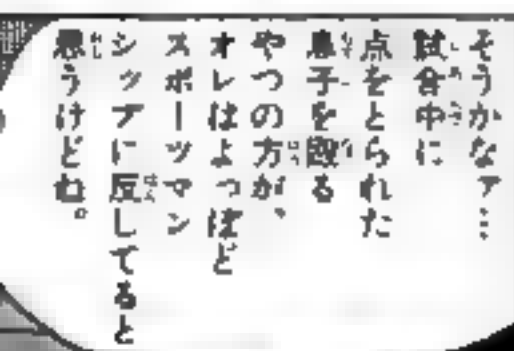 そうかなァ…
試合中に
点をとられた
息子を殴る
やつの方が、
オレはよっぽど
スポーツマン
シップに反してると
思うけどね。